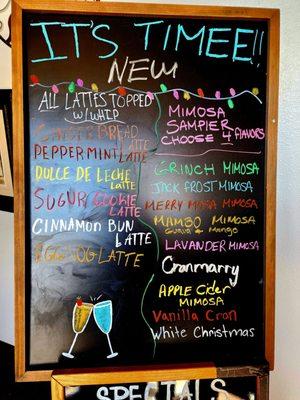 IT'S TIMEE!!
NEW
ALL LATTES TOPPED
W/ WHIP
GINGERBREAD
LATTE
PEPPERMINT LATTE
DULCE DE LECHE
LATTE
SUGUR COOKIE
LATTE
CINNAMON BUN
LATTE
EGG NOG LATTE
MIMOSA
SAMPLER
CHOOSE 4 FLAVORS
GRINCH MIMOSA
JACK FROST MIMOSA
MERRY MOSA MIMOSA
MAMBO MIMOSA
Guava & Mango
LAVANDER MIMOSA
Cranmarry
APPLE CiDer
MIMOSA
Vanilla Cran
White Christmas
SPECIALS